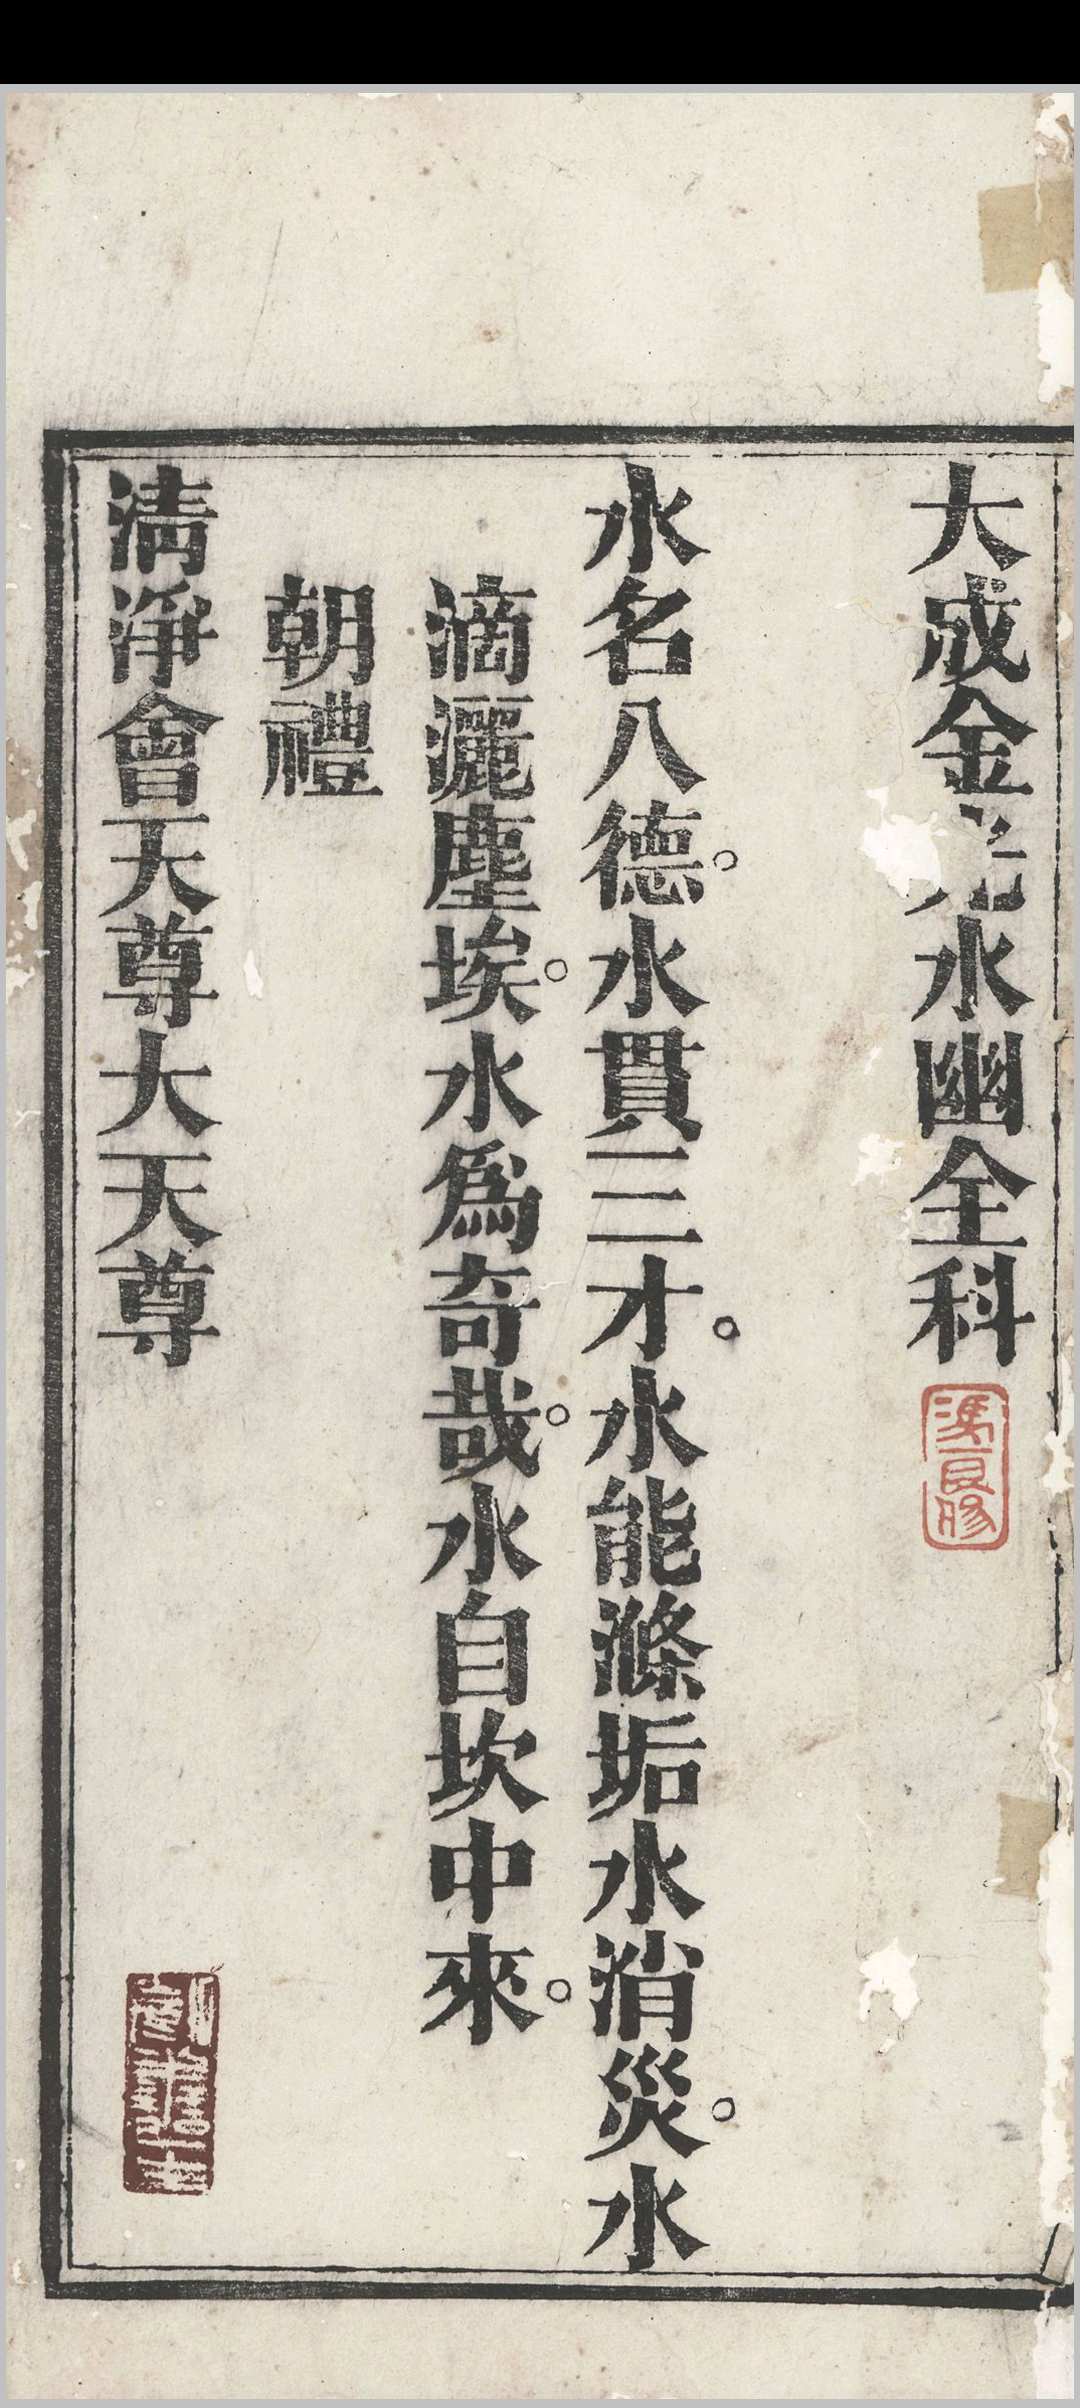 大成金光水幽全科
馮百勝
水名八德。水貫三才。水能滌垢水消災。水
滴灑塵埃。水爲奇哉。水自坎中來。
朝禮
清淨會天尊大天尊